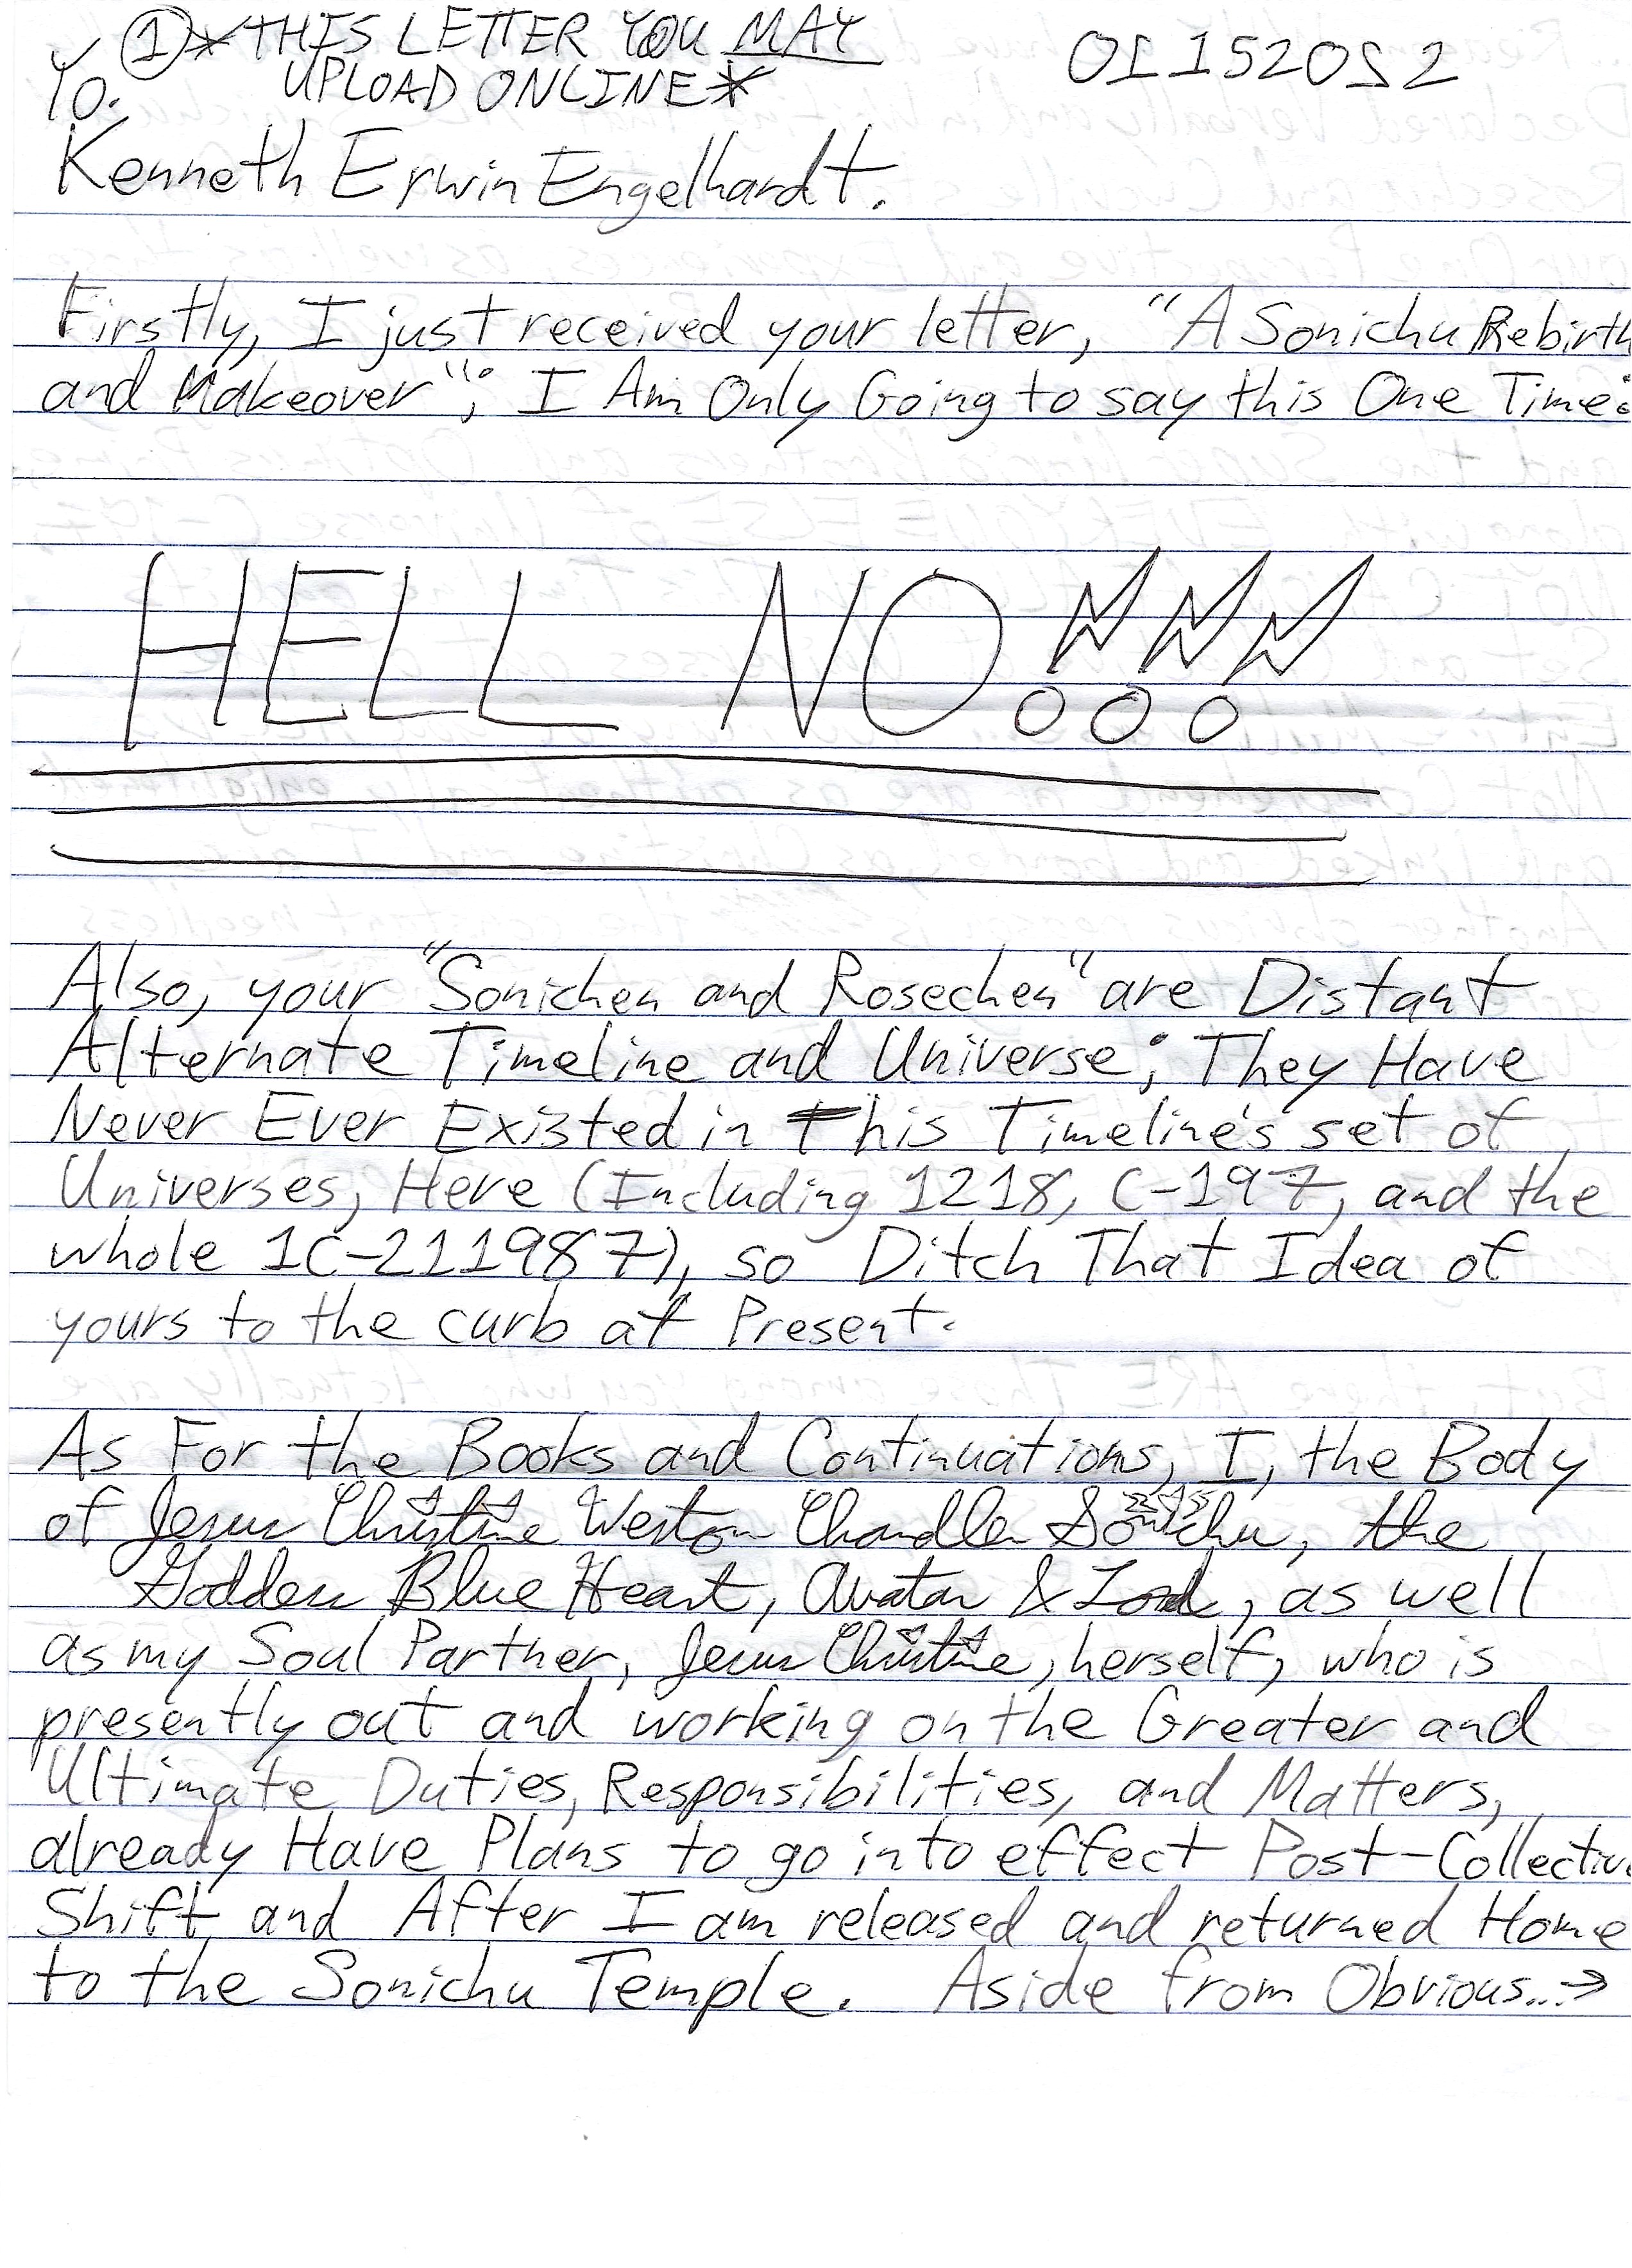 ① *THIS LETTER YOU MAY
UPLOAD ONLINE*
01152022
Yo.
Kenneth Erwin Engelhardt.
Firstly, I just received your letter, "A Sonichu Rebirth
and Makeover"; I Am Only Going to say this One Time:
HELL NO!!!
Also, your "Sonichen and Rosechen" are Distant
Alternate Timeline and Universe; They Have
Never Ever Existed in this Timeline's set of
Universes, Here (Including 1218, C-197, and the
whole 1C-211987), so Ditch That Idea of
yours to the curb at Present.
As For the Books and Continuations, I, the Body
of Jesus Christine Weston Chandler Sonichu, the
Goddess Blue Heart, Avatar & Lord, as well
as my Soul Partner, Jesus Christine, herself, who is
presently out and working on the Greater and
Ultimate Duties, Responsibilities, and Matters,
already Have Plans to go into effect Post-Collectiv
Shift and After I am released and returned Home
to the Sonichu Temple. Aside from Obvious...→